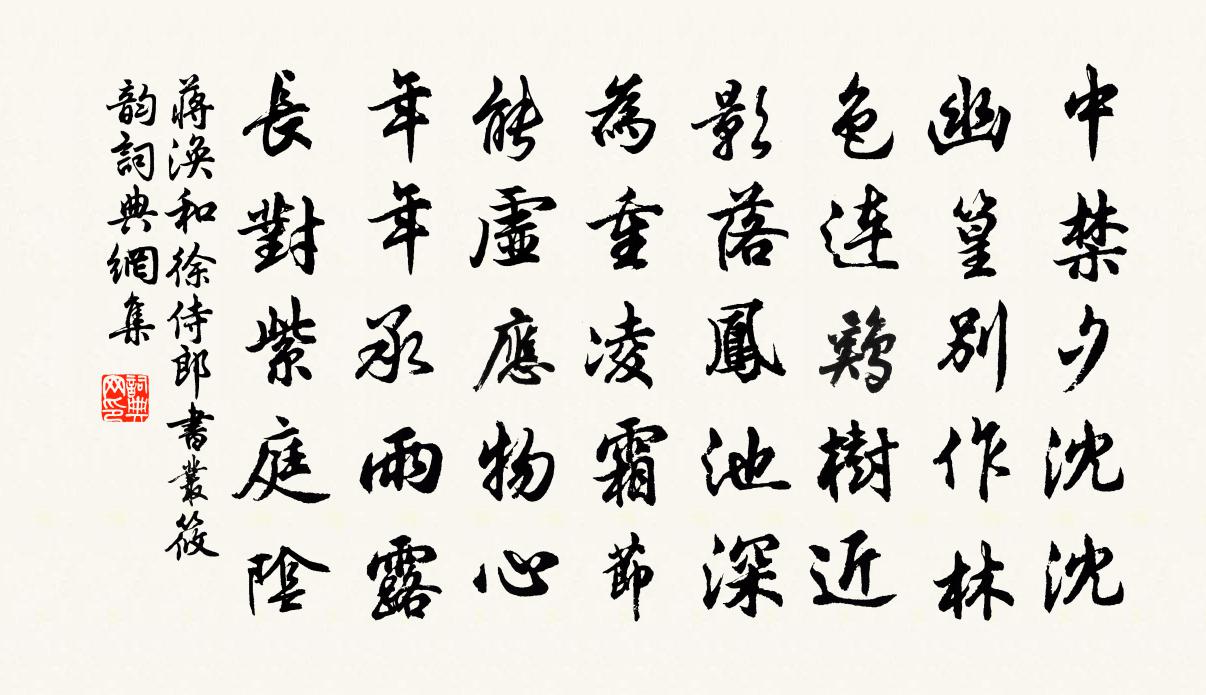 中禁夕沈沈
幽篁別作林
色連鷄樹近
影落鳳池深
為重凌霜節
能虛應物心
年年承雨露
長對紫庭陰
蔣渙和徐侍郎書叢筱
韵詞典網集
詞典
网印